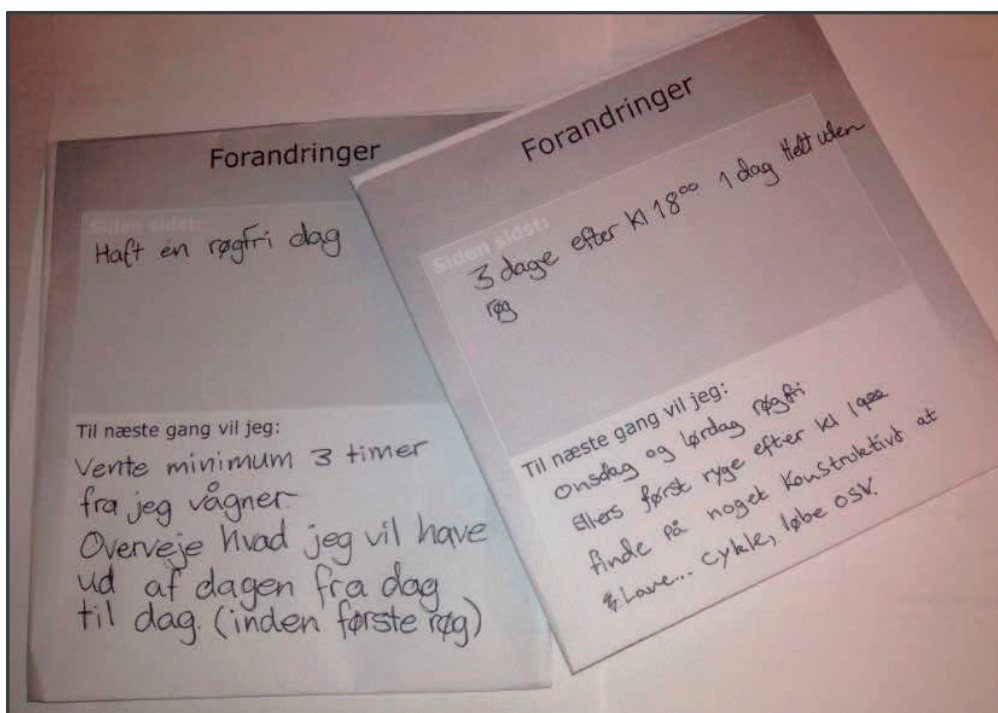 Forandringer
Siden sidst:
Haft én røgfri dag
Til næste gang vil jeg:
Vente minimum 3 timer
fra jeg vågner.
Overveje hvad jeg vil have
ud af dagen fra dag
til dag. (inden første røg)
Forandringer
Siden sidst:
3 dage efter Kl 18⁰⁰ 1 dag Helt uden
røg
Til næste gang vil jeg:
onsdag og lørdag røgfri
Ellers først ryge efter Kl 19⁰⁰
finde på noget Konstruktivt at
Lave... cykle, løbe osv.